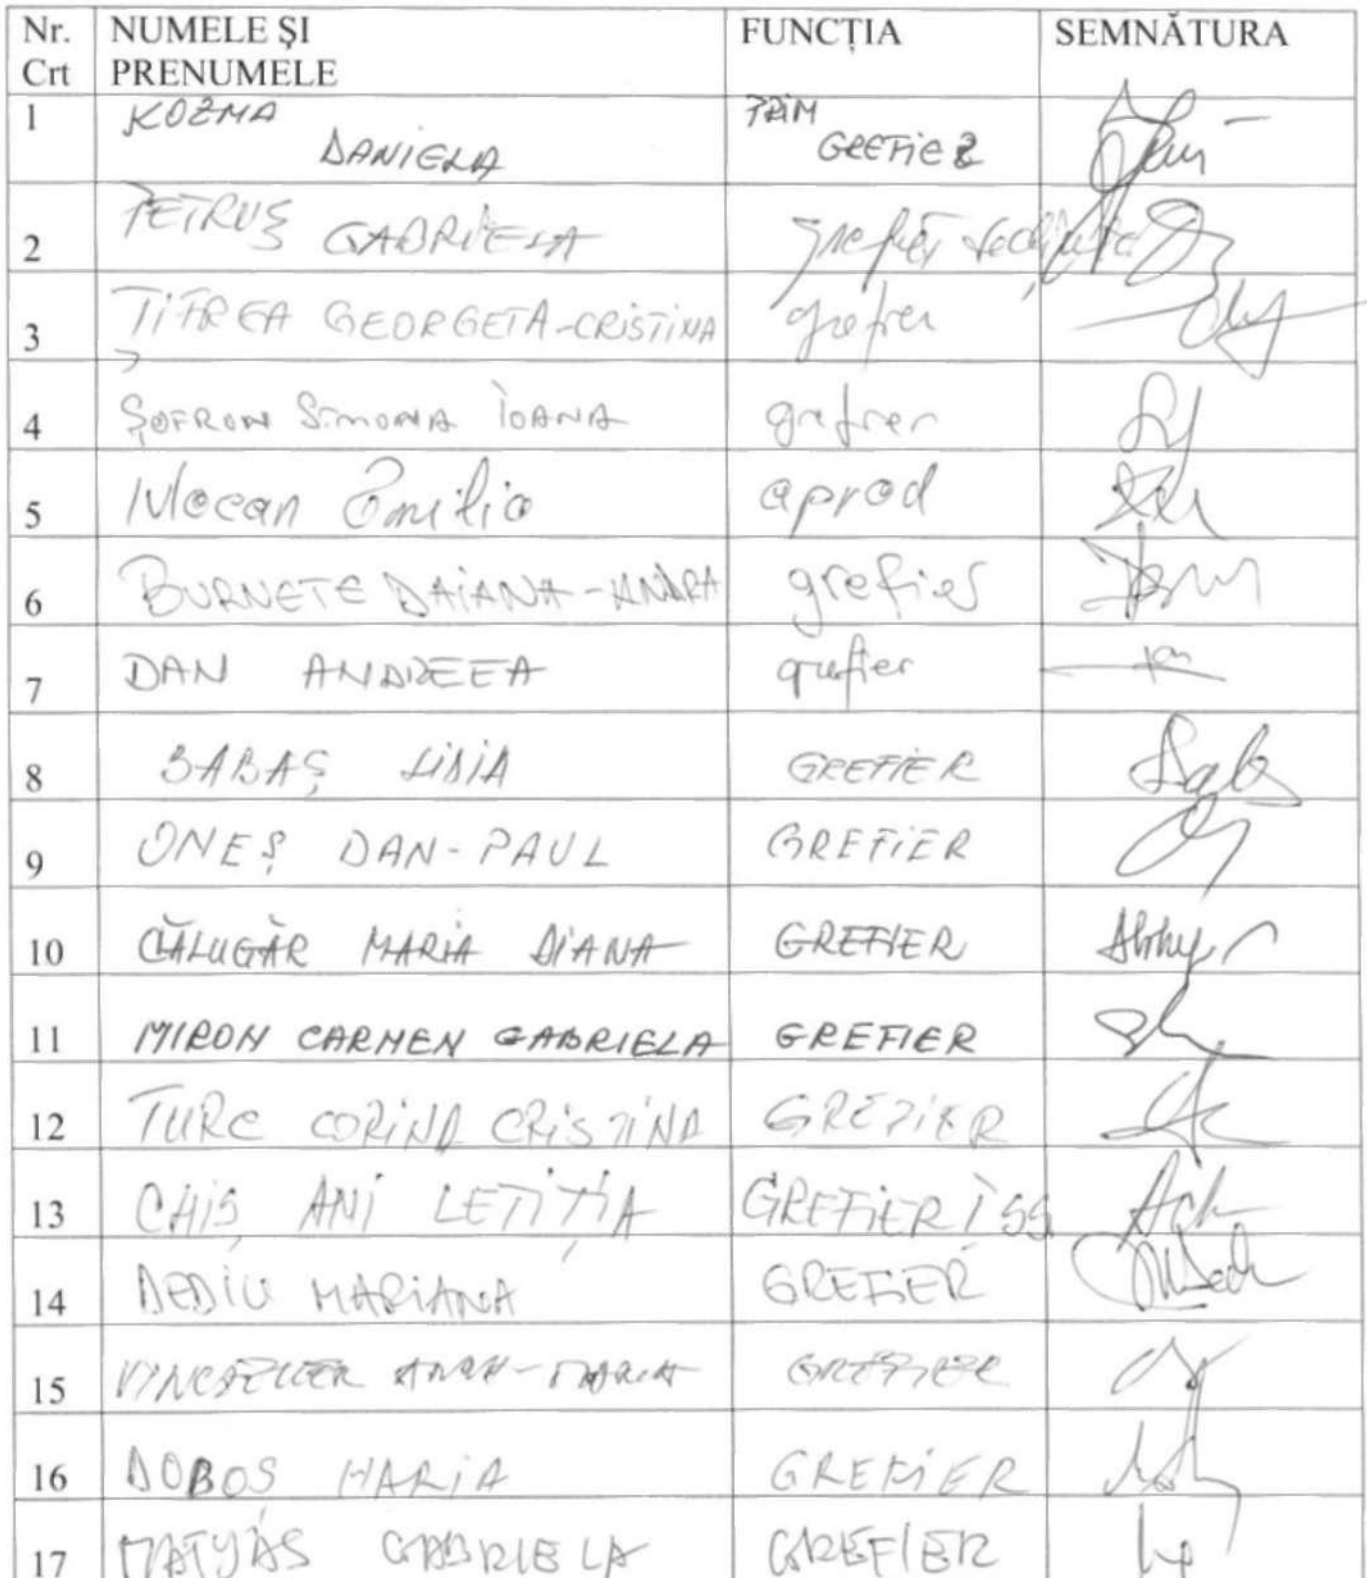 Nr. NUMELE ŞI FUNCŢIA SEMNĂTURA
Crt PRENUMELE
1 KOZMA PRIM
DANIELA GREFIER
2 PETRUŞ GABRIELA grefier
3 ŢIFREA GEORGETA-CRISTINA grefier
4 ŞOFRON SIMONA IOANA grefier
5 Mocan Emilia aprod
6 BURNETE DAIANA-ANDRA grefier
7 DAN ANDREEA grefier
8 BABAŞ LIDIA GREFIER
9 ONEŞ DAN-PAUL GREFIER
10 CĂLUGĂR MARIA DIANA GREFIER
11 MIRON CARMEN GABRIELA GREFIER
12 TURC CORINA CRISTINA GREFIER
13 CHIŞ ANI LETIŢIA GREFIER ISS
14 DEDIU MARIANA GREFIER
15 ANNA-MARIA GREFIER
16 DOBOS MARIA GREFIER
17 MATYÁS GABRIELA GREFIER